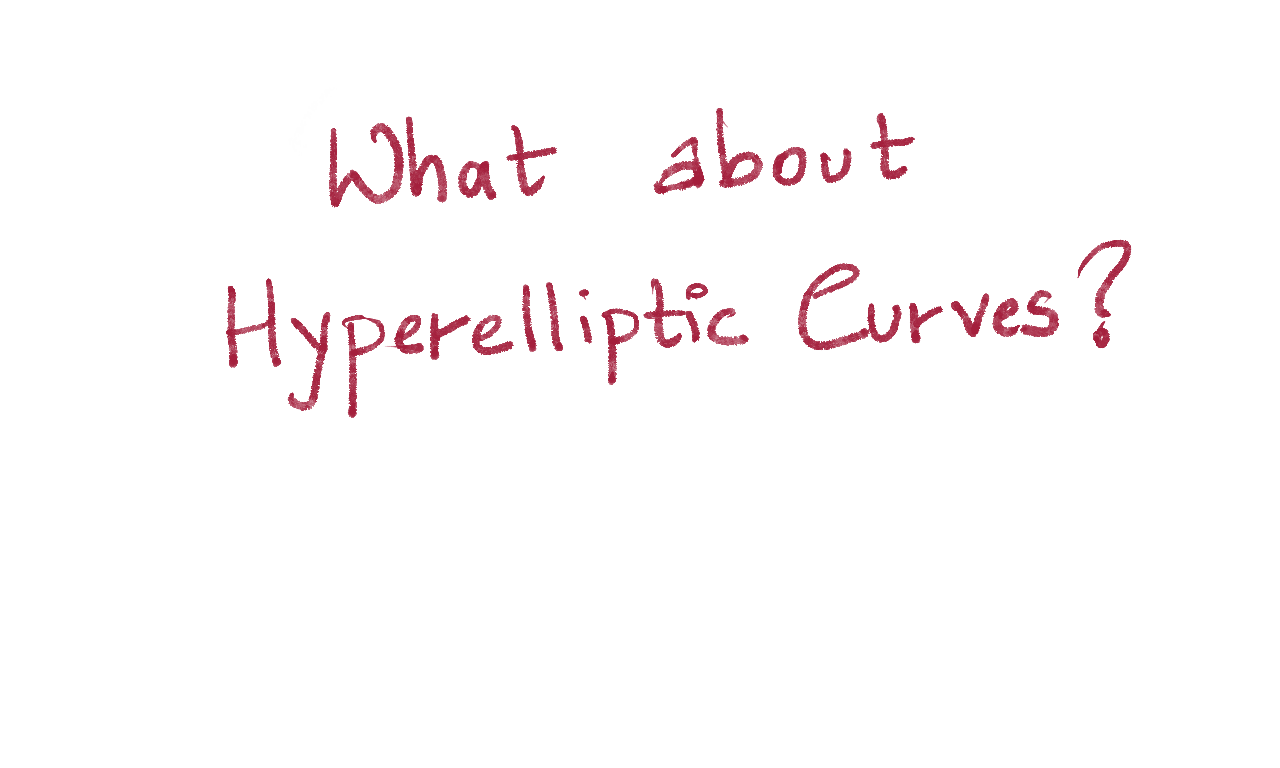 What about
Hyperelliptic Curves?